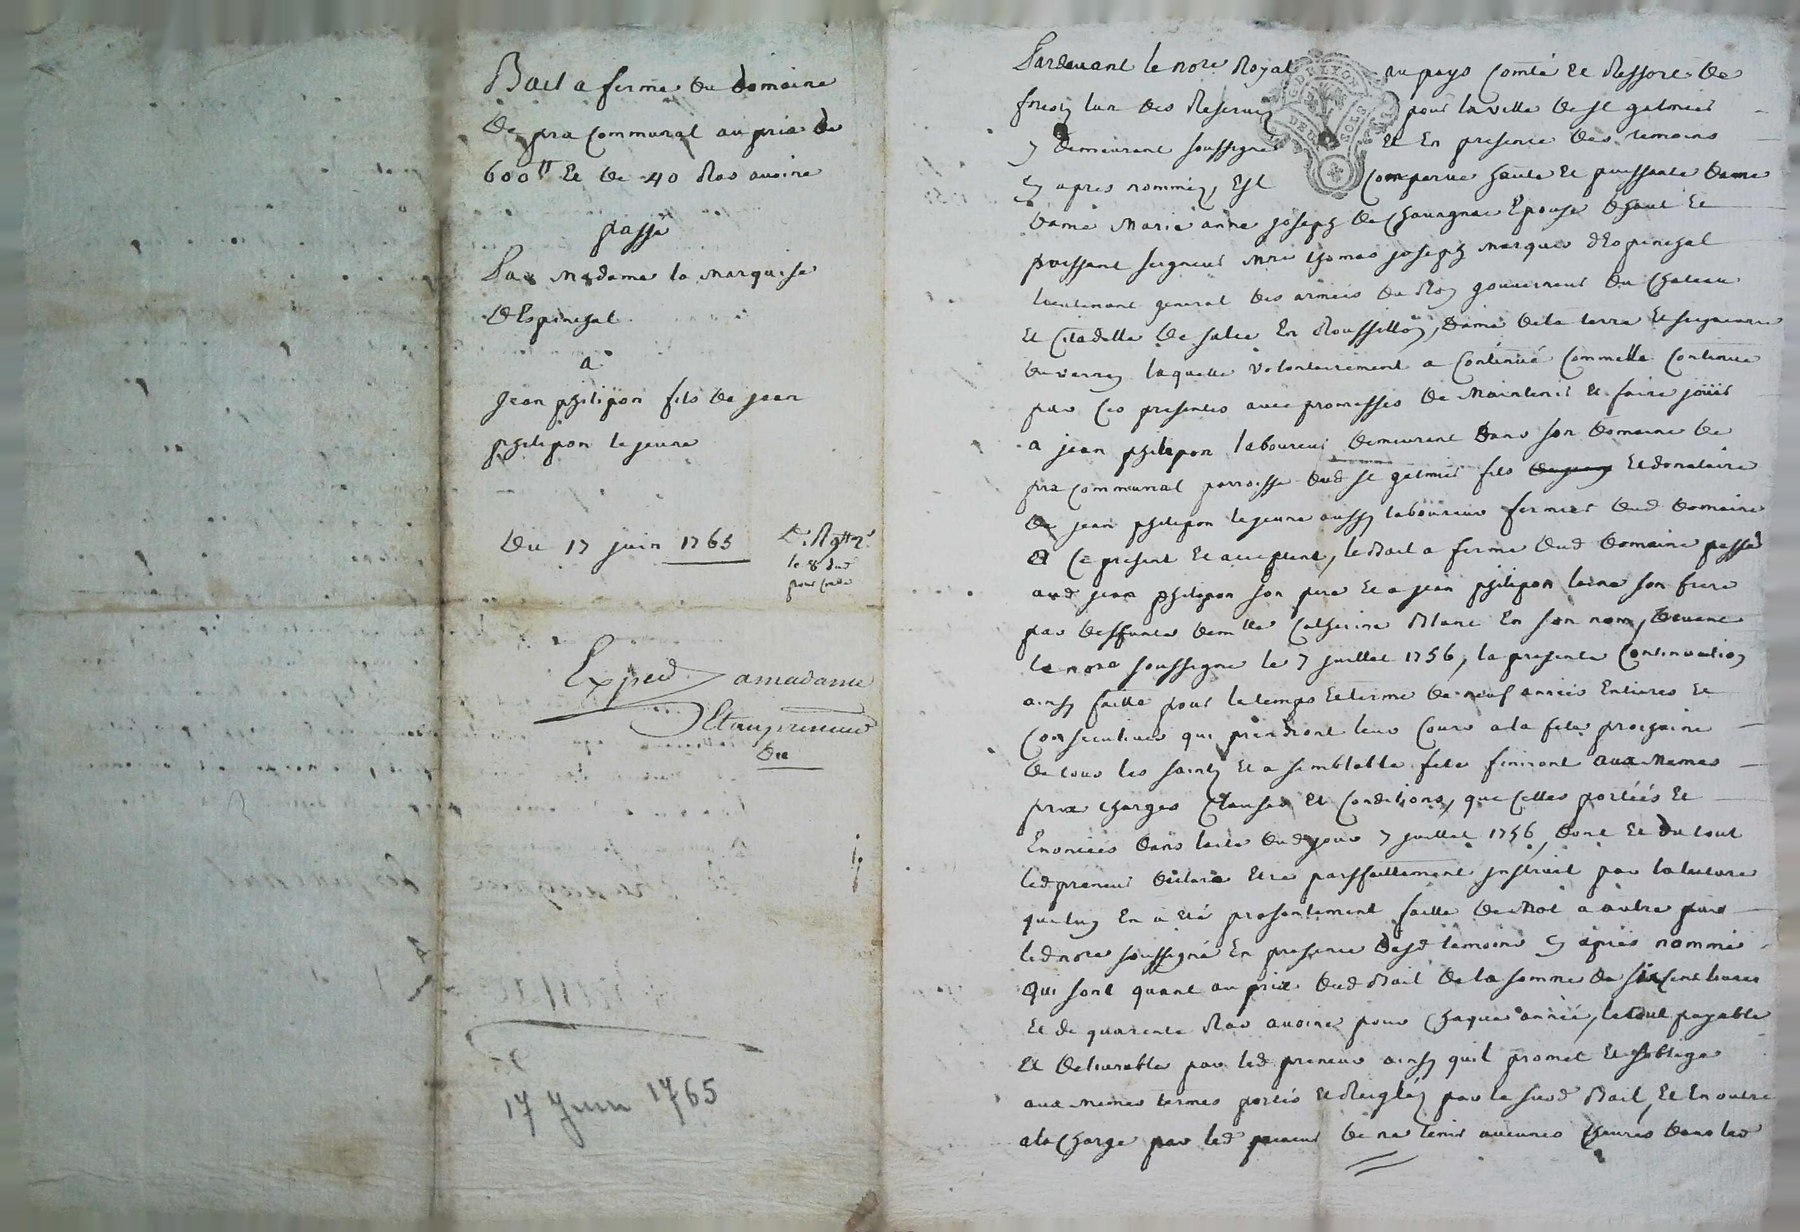 Bail a ferme du domaine
de pra communal au prix de
600ᵗᵗ Et de 40 Ras avoine
passé
Par Madame la Marquise
d'Espinchal
a
Jean philipon fils de jean
philipon le jeune
Du 17 juin 1765
le 8 dud
Exped a madame
Et au preneur
17 Juin 1765
Pardevant le nore Royal au pays Comté Et Ressort de
forez lun des Reservez pour la ville de st galmier
y demeurant soussigné Et En presence des temoins
cy apres nommez, Est Comparue haute Et puissante dame
dame Marie anne joseph de Chavagnac Epouse d'haut Et
puissant seigneur Mre thomas joseph marquis dEspinchal
lieutenant general des armées du Roy gouverneur du Chateau
Et Citadelle de salce En Roussillon, dame de la terre Et seigneurie
du verney laquelle volontairement a Continué Comme Elle Continue
par Ces presentes avec promesses de Maintenir Et faire joüir
a jean philipon laboureur demeurant dans son domaine de
pra communal parroisse dud st galmier fils Et donataire
de jean philipon le jeune aussy laboureur fermier dud domaine
a Ce present Et acceptant, le Bail a ferme dud domaine passé
aud jean philipon son pere Et a jean philipon laine son frere
par deffunte demlle Catherine Blanc En son nom, devant
le nore soussigné le 7 juillet 1756, la presente Continuation
ainsy faitte pour le temps Et terme de neuf années Entieres Et
Consecutives qui prendront leur Cours a la fete prochaine
de tous les saints Et a semblable fete finiront aux Memes
prix charges Clauses Et Conditions, que Celles portées Et
Enoncées dans lacte dud jour 7 juillet 1756, dont Et du tout
led preneur declare Etre parfaittement jnstruit par la lecture
que luy En a Eté presentement faitte de Mot a autre par
led nore soussigné En presence desd temoins cy apres nommés
Qui sont quant au prix dud Bail de la somme de six Cent livres
Et de quarente Ras avoine pour Chaque année, le tout payable
Et delivrable par led preneur ainsy quil promet Et soblige
aux memes termes portés Et Reiglés par le susd Bail, Et En outre
a la Charge par led preneur de ne tenir aucunes Chevres dans led